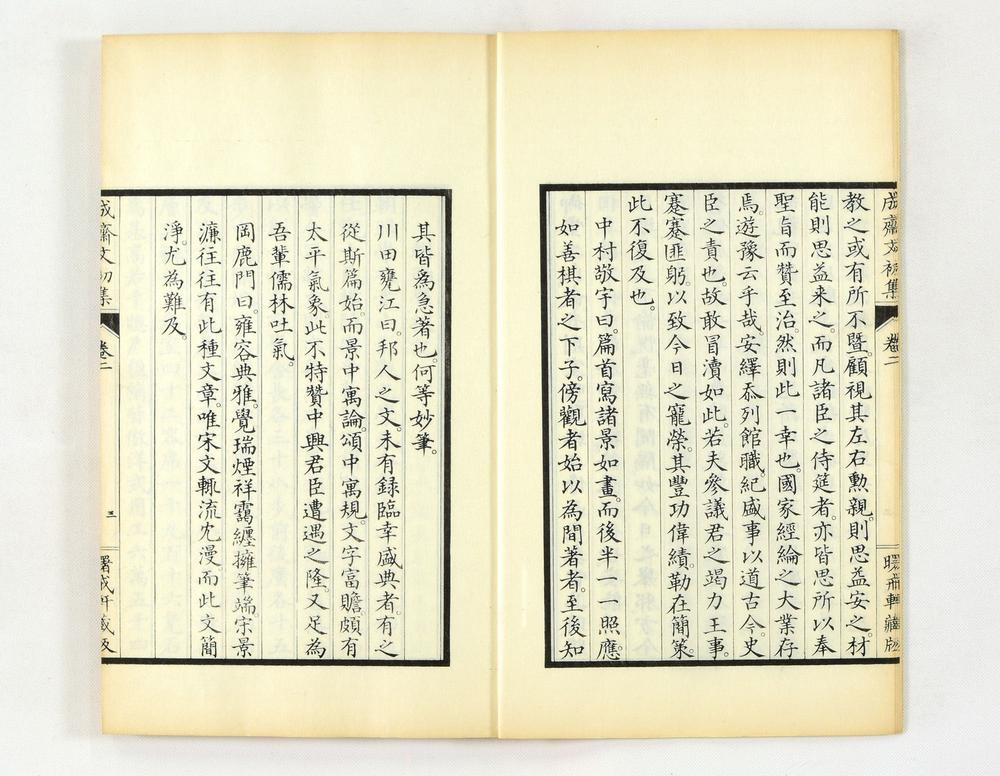 成齋文初集 卷二
教之或有所不暨。顧視其左右勲親。則思益安之。材
能則思益来之。而凡諸臣之侍筵者。亦皆思所以奉
聖旨而贊至治。然則此一幸也。國家經綸之大業存
焉。遊豫云乎哉。安繹忝列館職。紀盛事以道古今。史
臣之責也。故敢冒瀆如此。若夫參議君之竭力王事。
蹇蹇匪躬。以致今日之寵榮。其豐功偉績。勒在簡策。
此不復及也。
中村敬宇曰。篇首寫諸景如畫。而後半一一照應。
如善棋者之下子。傍觀者始以為閒著者。至後知
其皆爲急著也。何等妙筆。
川田甕江曰。邦人之文。未有録臨幸盛典者。有之
從斯篇始。而景中寓論。頌中寓規。文字富贍。頗有
太平氣象。此不特贊中興君臣遭遇之隆。又足為
吾輩儒林吐氣。
岡鹿門曰。雍容典雅。覺瑞煙祥靄纏擁筆端。宗景
濂往往有此種文章。唯宋文輙流冗漫。而此文簡
淨。尤為難及。
成齋文初集 卷二 三